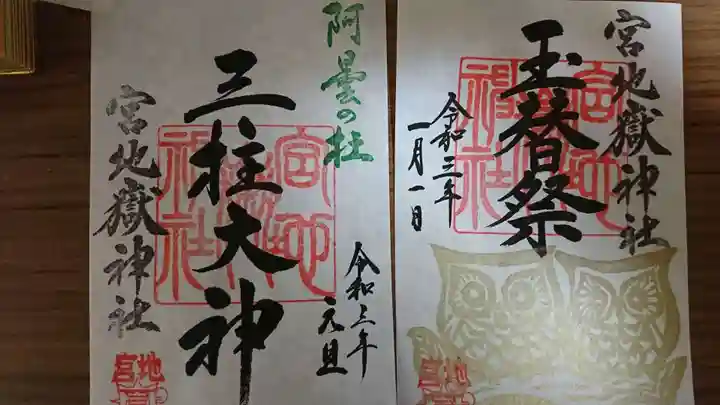 宮地嶽神社
玉替祭
令和三年
一月一日
宮地嶽神社
阿曇の杜
三柱大神
宮地嶽神社
令和三年
元旦
宮地嶽神社